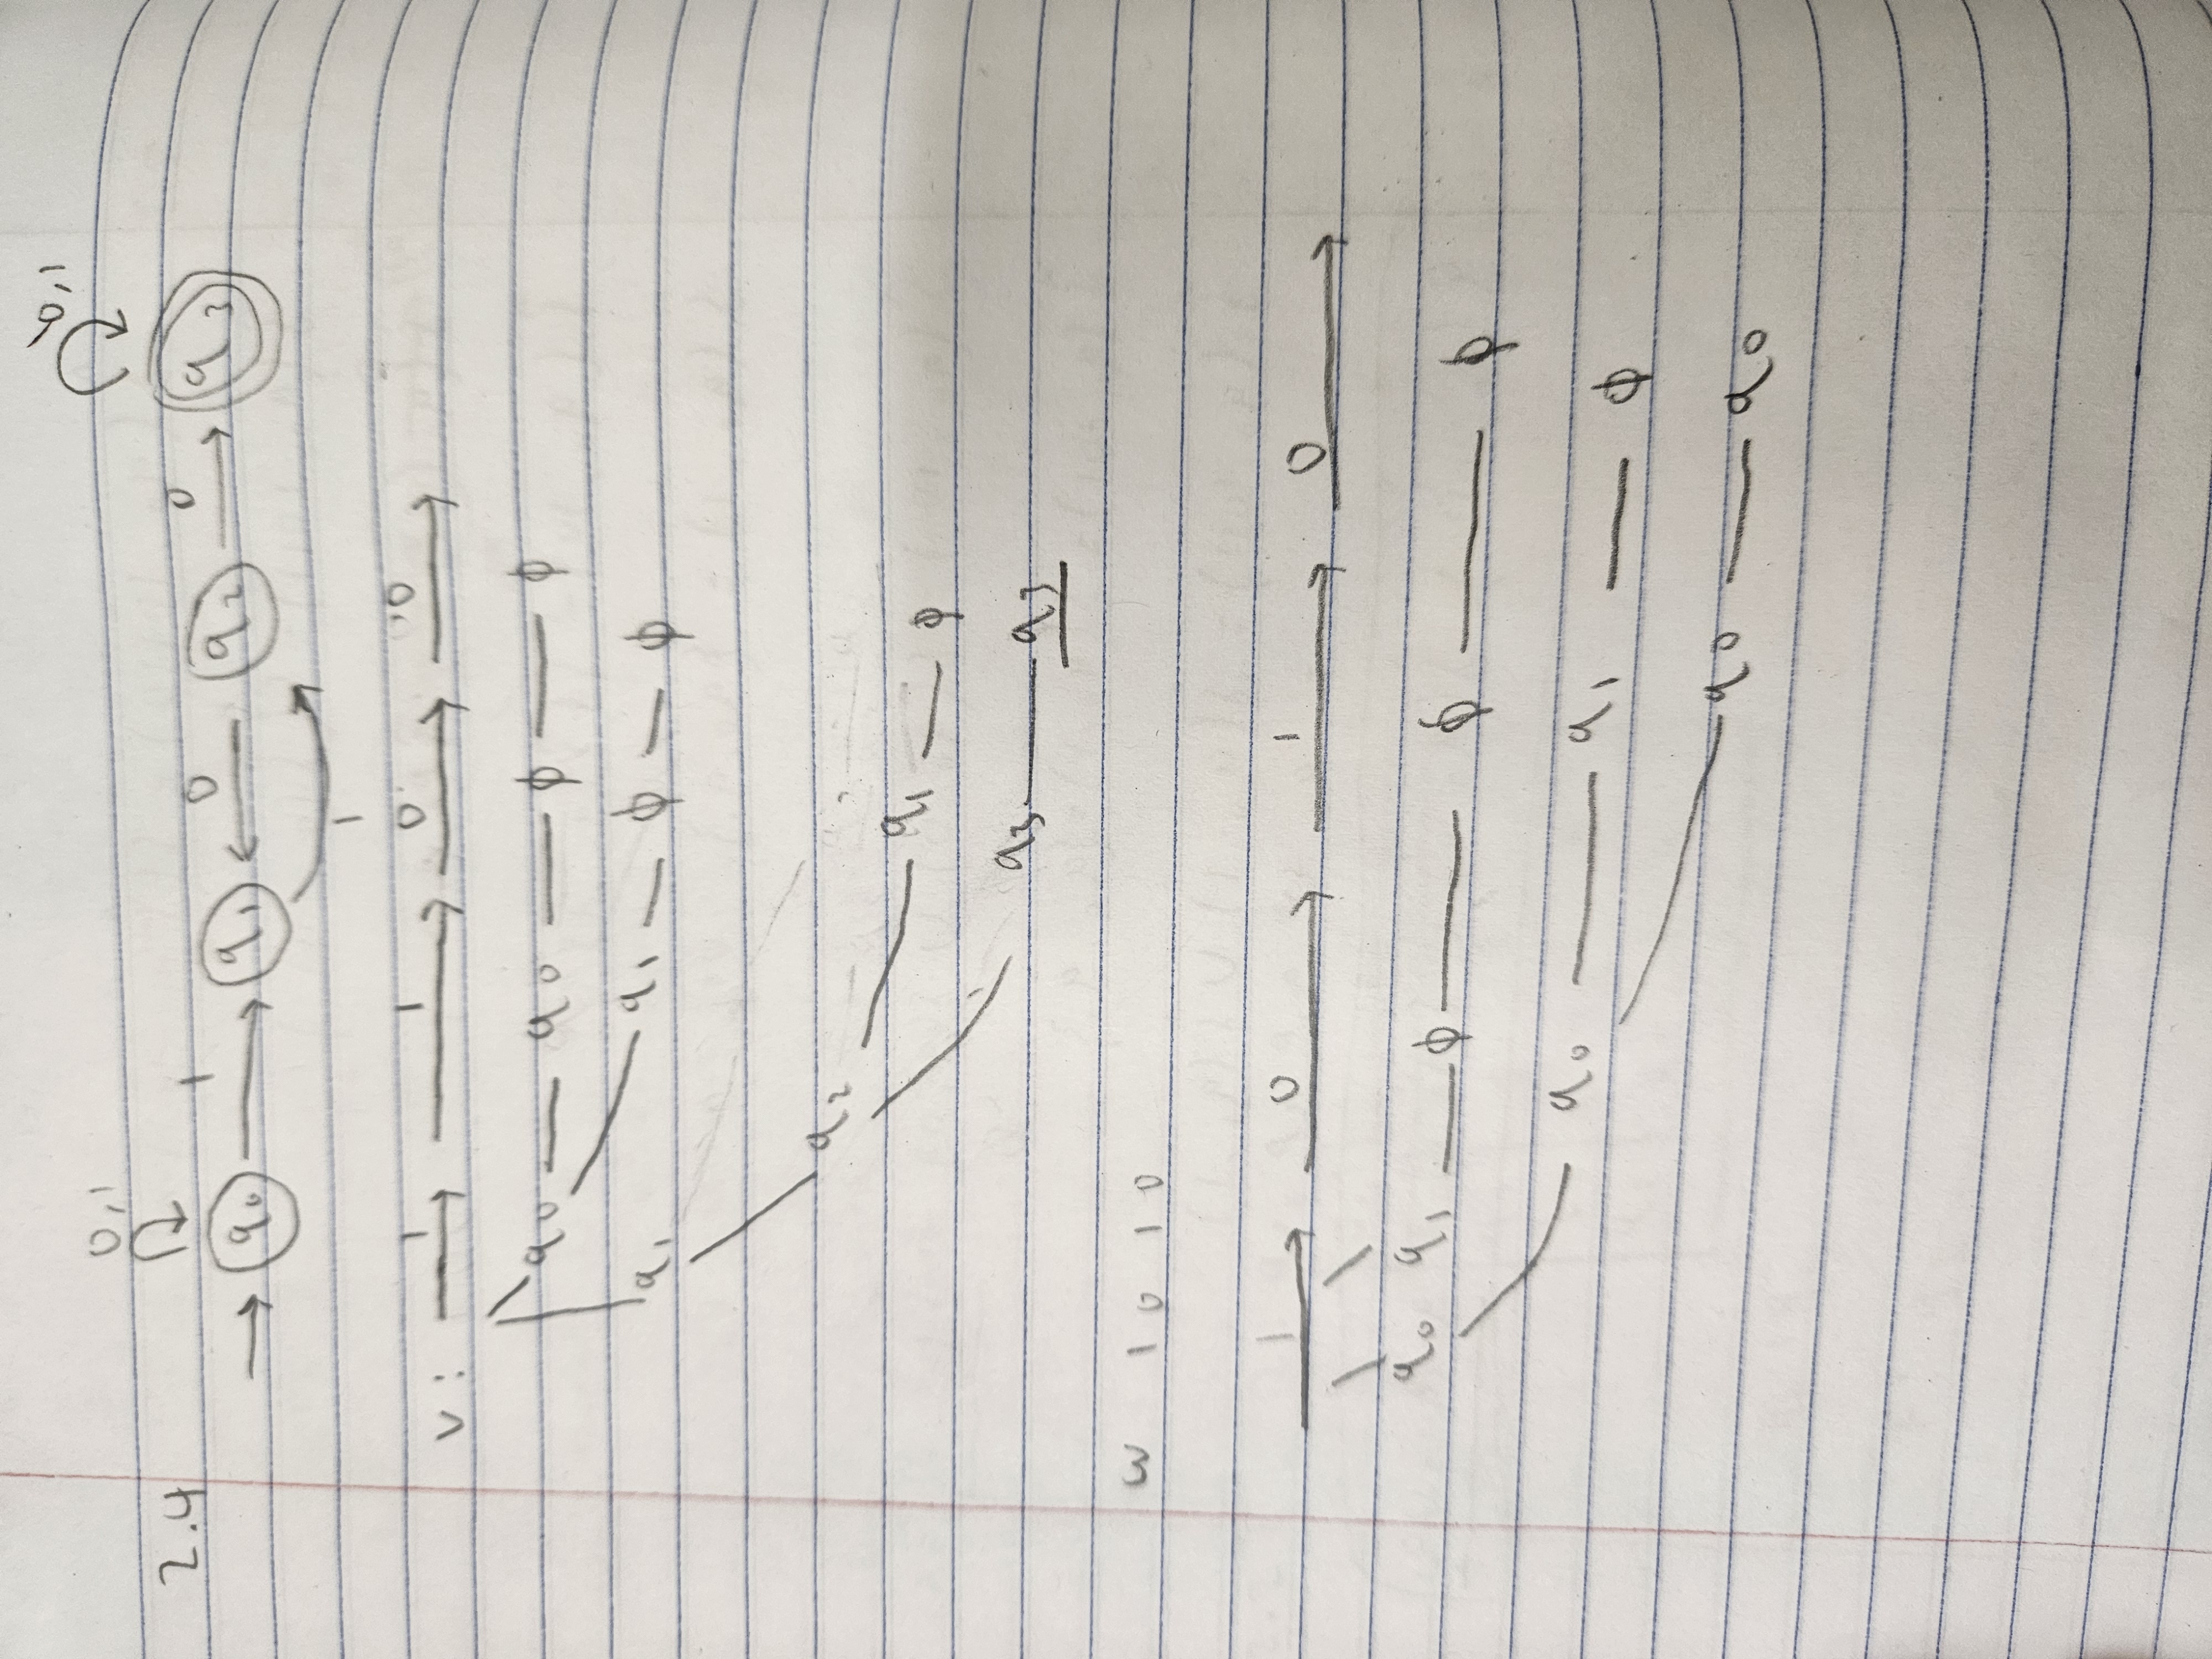 0,1
0,1
2.4
→ q₀ 1→ q₁ ←0 q₂ 0→ q₃
1
v: 1→ 1→ 0→ 0→
q₀ — q₀ — ϕ — ϕ
q₁ — ϕ — ϕ
q₁
q₂
q₁ — ϕ
q₃ — q₃
w 1 0 1 0
1→ 0→ 1→ 0→
q₀ q₁ — ϕ — ϕ — ϕ
q₀ — q₁ — ϕ
q₀ — q₀